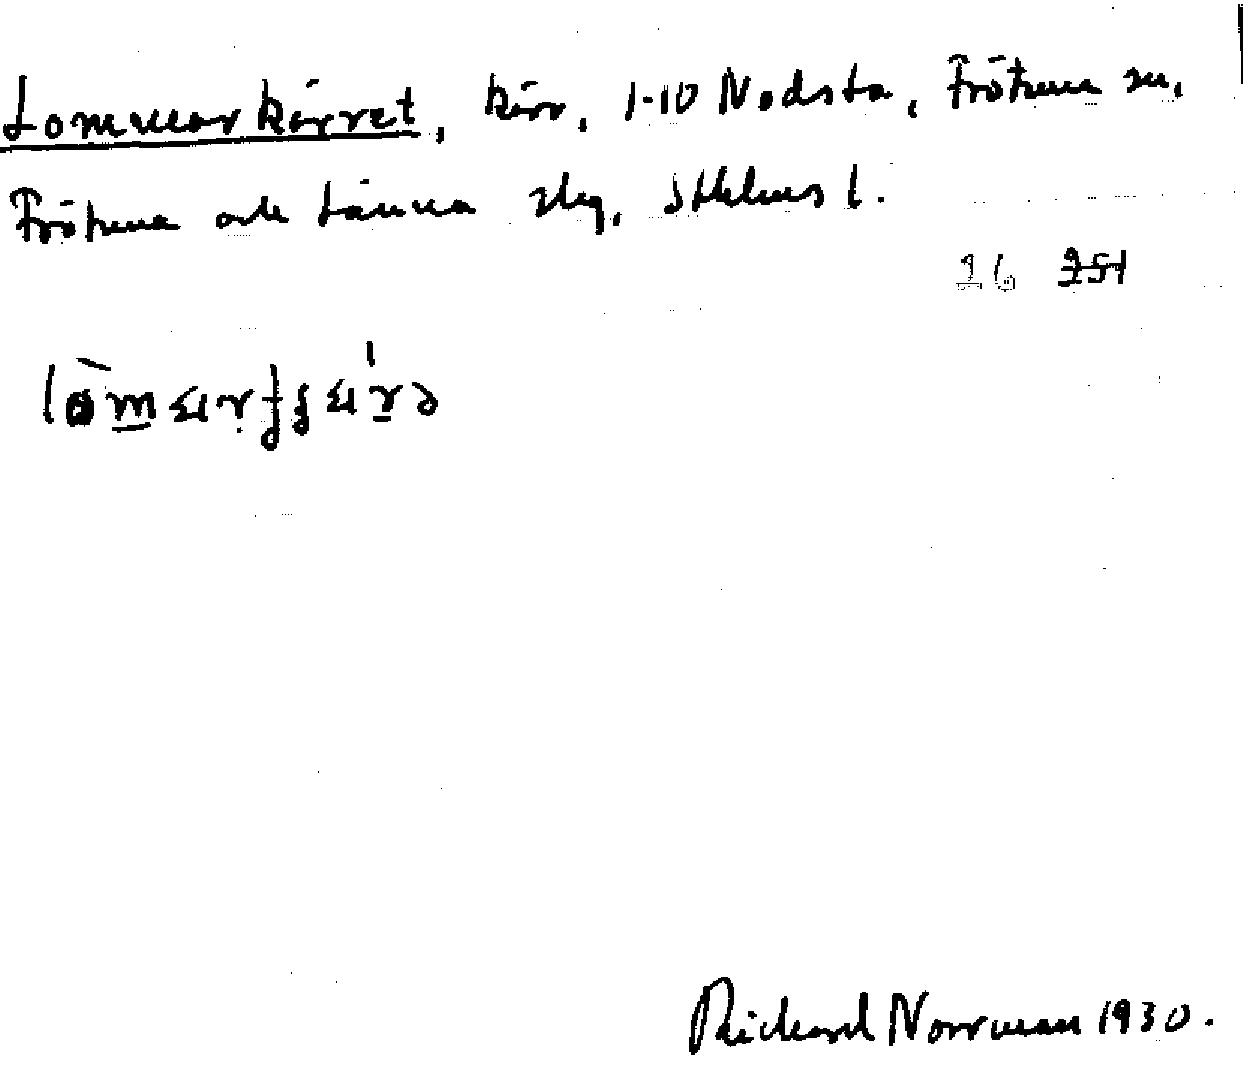 Lommarkärret, kärr, 1-10 Nodsta, Frötuna sn,
Frötuna och Länna slg, Sthlms l.
16 251
Richard Norrman 1930.